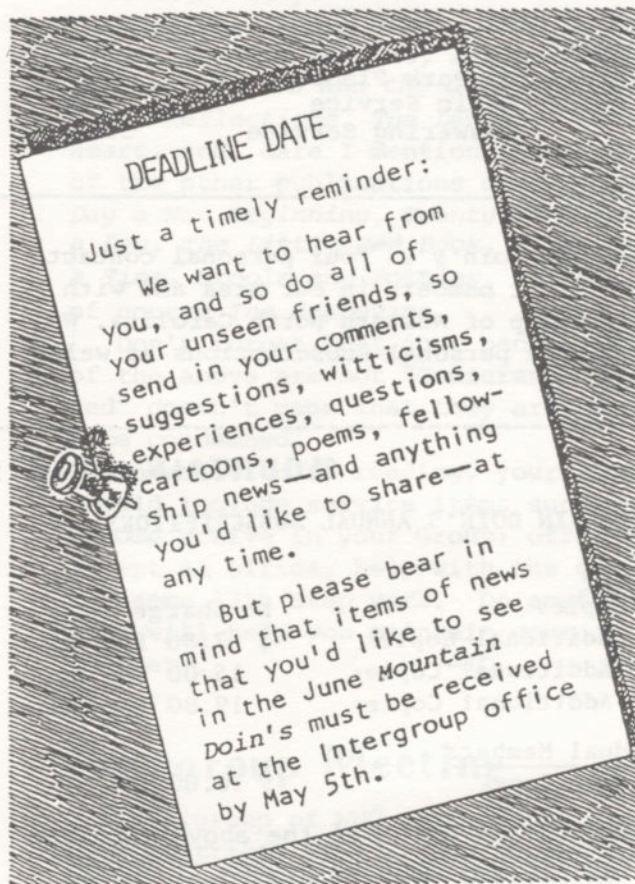 DEADLINE DATE
Just a timely reminder:
We want to hear from
you, and so do all of
your unseen friends, so
send in your comments,
suggestions, witticisms,
experiences, questions,
cartoons, poems, fellow-
ship news—and anything
you'd like to share—at
any time.
But please bear in
mind that items of news
that you'd like to see
in the June Mountain
Doin's must be received
at the Intergroup office
by May 5th.